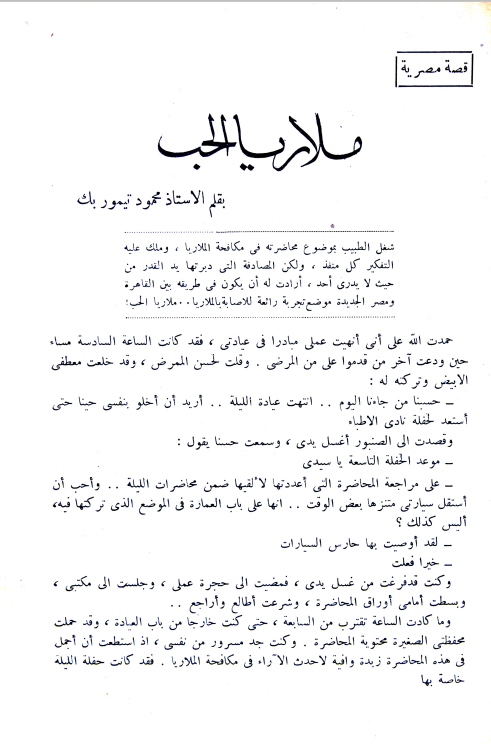 قصة مصرية
ملاريا الحب
بقلم الاستاذ محمود تيمور بك
شغل الطبيب بموضوع محاضرته فى مكافحة الملاريا ، وملك عليه
التفكير كل منفذ ، ولكن المصادفة التى دبرتها يد القدر من
حيث لا يدرى أحد ، أرادت له أن يكون فى طريقه بين القاهرة
ومصر الجديدة موضع تجربة رائعة للاصابة بالملاريا . . ملاريا الحب !
حمدت الله على أنى أنهيت عملى مبادرا فى عيادتى ، فقد كانت الساعة السادسة مساء
حين ودعت آخر من قدموا على من المرضى . وقلت لحسن الممرض ، وقد خلعت معطفى
الابيض وتركته له :
ـ حسبنا من جاءنا اليوم . . انتهت عيادة الليلة . . أريد أن أخلو بنفسى حينا حتى
أستعد لحفلة نادى الاطباء
وقصدت الى الصنبور أغسل يدى ، وسمعت حسنا يقول :
ـ موعد الحفلة التاسعة يا سيدى
ـ على مراجعة المحاضرة التى أعددتها لألقيها ضمن محاضرات الليلة . . وأحب أن
أستقل سيارتى متنزها بعض الوقت . . انها على باب العمارة فى الموضع الذى تركتها فيه،
أليس كذلك ؟
ـ لقد أوصيت بها حارس السيارات
ـ خيرا فعلت
وكنت قدفرغت من غسل يدى ، فمضيت الى حجرة عملى ، وجلست الى مكتبى ،
وبسطت أمامى أوراق المحاضرة ، وشرعت أطالع وأراجع . .
وما كادت الساعة تقترب من السابعة ، حتى كنت خارجا من باب العيادة ، وقد حملت
محفظتى الصغيرة محتوية المحاضرة . وكنت جد مسرور من نفسى ، اذ استطعت أن أجمل
فى هذه المحاضرة زبدة وافية لاحدث الآراء فى مكافحة الملاريا . فقد كانت حفلة الليلة
خاصة بها